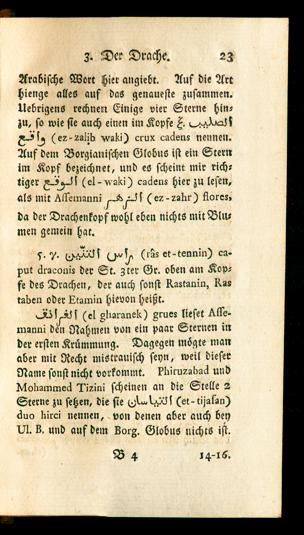 3. Der Drache. 23
Arabische Wort hier angiebt. Auf die Art
hienge alles auf das genaueste zusammen.
Uebrigens rechnen Einige vier Sterne hin-
zu, so wie sie auch einen im Kopfe ξ. الصليب
واقع (ez-zalib waki) crux cadens nennen.
Auf dem Borgianischen Globus ist ein Stern
im Kopf bezeichnet, und es scheint mir rich-
tiger الوقع (el-waki) cadens hier zu lesen,
als mit Assemanni الزهر (ez-zahr) flores,
da der Drachenkopf wohl eben nichts mit Blu-
men gemein hat.
راس التنّين (râs et-tennin) ca-
put draconis der St. 3ter Gr. oben am Kop-
fe des Drachen, der auch sonst Rastanin, Ras
taben oder Etamin hievon heißt.
الغرانق (el gharanek) grues lieset Asse-
manni den Nahmen von ein paar Sternen in
der ersten Krümmung. Dagegen mögte man
aber mit Recht mistrauisch seyn, weil dieser
Name sonst nicht vorkommt. Phiruzabad und
Mohammed Tizini scheinen an die Stelle 2
Sterne zu setzen, die sie التياسان (et-tijasan)
duo hirci nennen, von denen aber auch bey
Ul. B. und auf dem Borg. Globus nichts ist.
B 4 14-16.